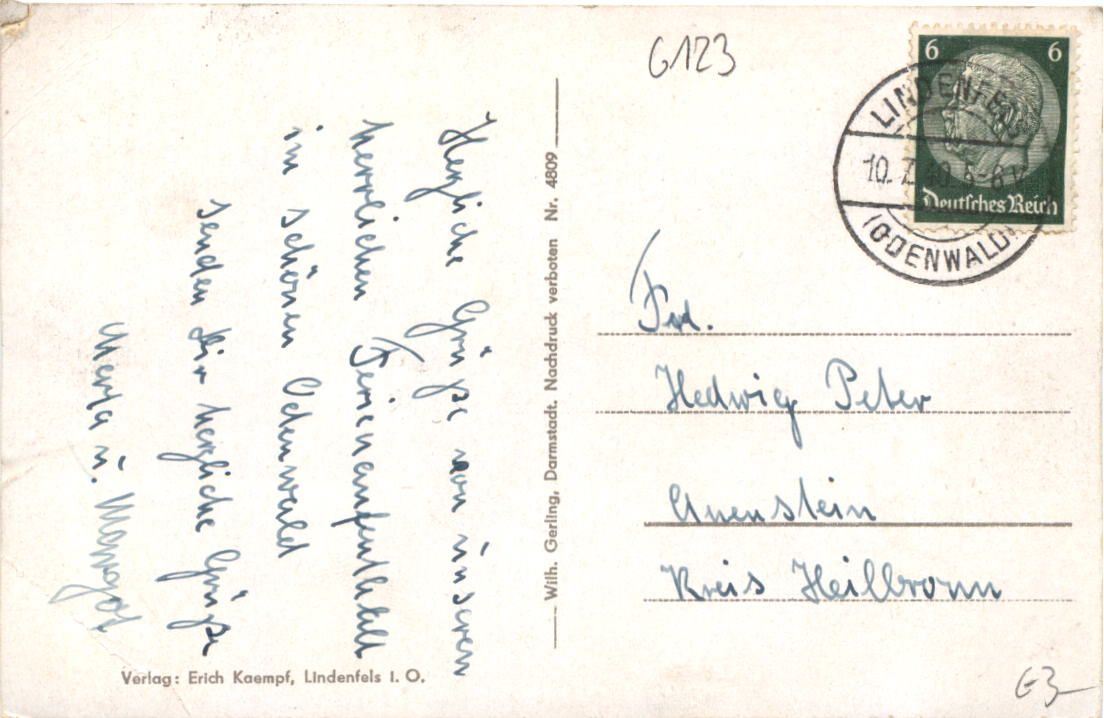 G123
6 6
Deutsches Reich
LINDENFELS
10.7.40.5-6
(ODENWALD)
Herzliche Grüße von unseren
herrlichen Ferienaufenthalt
in schönen Odenwald
senden Dir herzliche Grüße
Herta u. Margot
Wilh. Gerling, Darmstadt. Nachdruck verboten Nr. 4809
Frl.
Hedwig Peter
Auenstein
Kreis Heilbronn
Verlag: Erich Kaempf, Lindenfels i. O.
G3